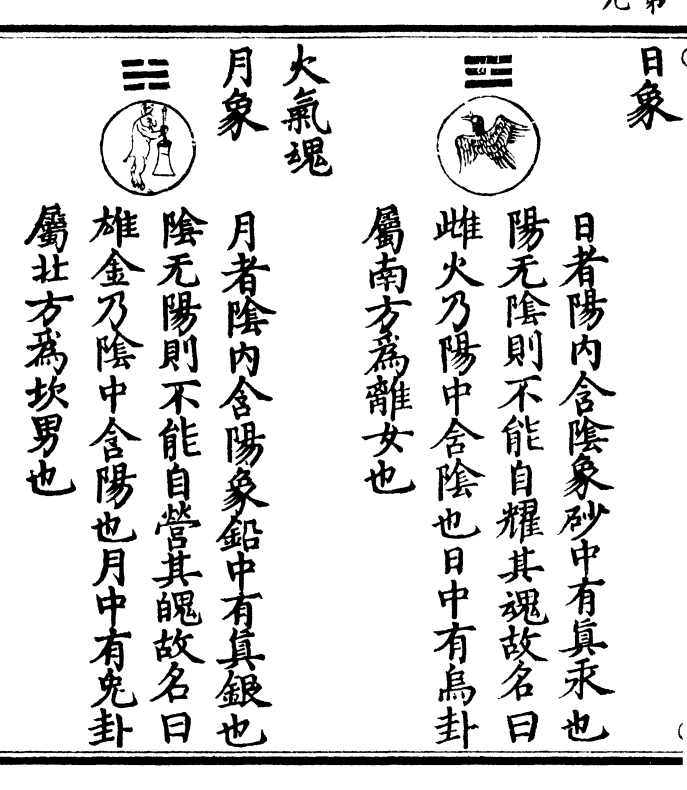 日象
日者陽內含陰象砂中有眞汞也
陽无陰則不能自耀其魂故名曰
雌火乃陽中含陰也日中有烏卦
屬南方為離女也
火氣魂
月象
月者陰內含陽象鉛中有眞銀也
陰无陽則不能自營其魄故名曰
雄金乃陰中含陽也月中有兔卦
屬北方為坎男也